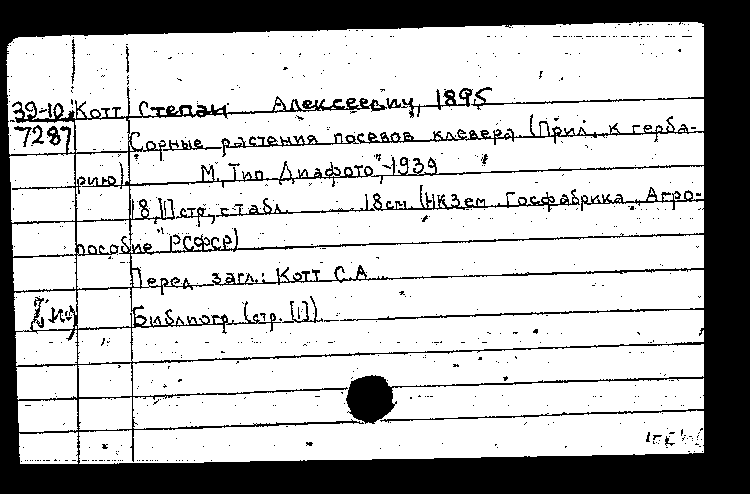 39-10. Котт, Степан Алексеевич, 1895
7287 Сорные растения посевов клевера (Прил. к герба-
рию). М, Тип. "Диафото", 1939
18,[1] стр., с табл. 18 см (НКЗем. Госфабрика "Агро-
пособие" РСФСР)
Перед загл.: Котт С.А
Библиогр. (стр. [1])